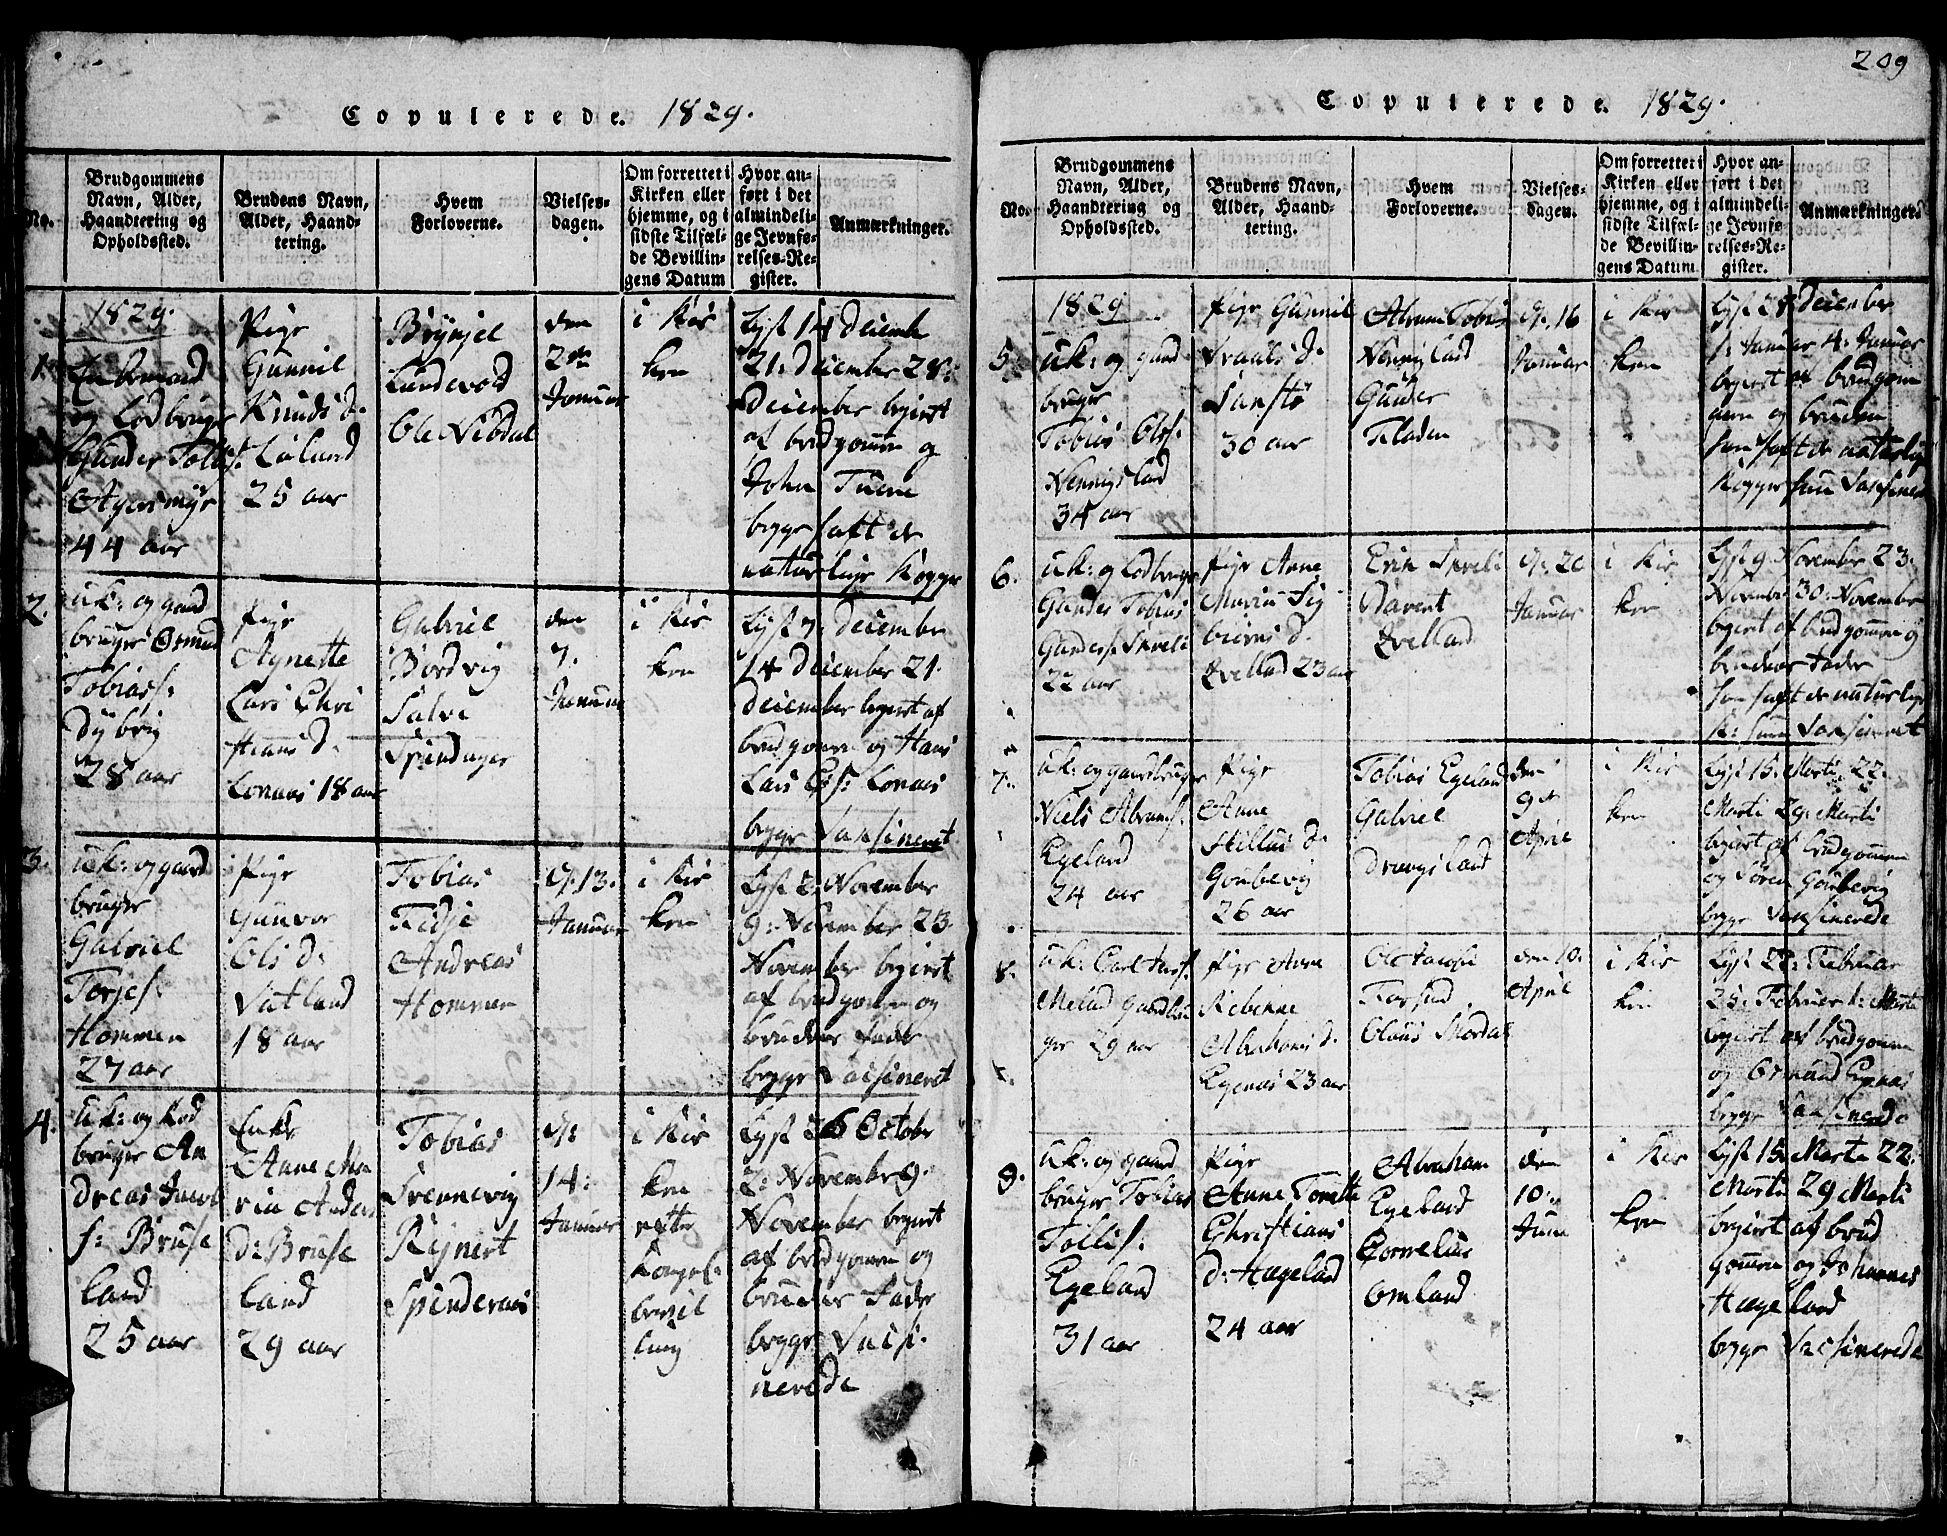 209
Copulerede. 1829.
No.
Brudgommens
Navn, Alder,
Haandtering og
Opholdssted.
Brudens Navn,
Alder, Haand-
tering.
Hvem
Forloverne.
Vielses-
dagen.
Om forrettet i
Kirken eller
hjemme, og i
sidste Tilfæl-
de Bevillin-
gens Datum
Hvor an-
ført i det
almindeli-
ge Jevnfø-
relses-Re-
gister.
Anmærkninger.
1829.
1.
Enkemand
og Lodbruger
Gunder Tollis:
44 aar
Pige
Gunnil
Knuds d.
25 aar
Brynjel
Lundevold
Ole Nibdal
den
2den
Januar
i Kir
ken
Lyst 14 Deiembe
21: Deiember 28:
Deiember begiert
af brudgomen og
John Tuene
begge haft de
naturlige Kopper
2.
u.k: og gaard
bruger Osmund
Tobias s:
Dybvig
28 aar
Pige
Agnette
Lars Chri
stians d.
Lonaas 18 aar
Gabriel
Bordvig
Salve
den
7.
Januar
i Kir
ken
Lyst 7: Deiember
14 Deiember 21.
Deiember begiert af
brudgomen og Hans
Lars Lonaas
begge Vaksineret
3.
u.k: og gaard
bruger
Gabriel
Torjes:
Hommen
27 aar
Pige
Gunvor
Ols d:
Vatland
18 aar
Tobias
Fedje
Andreas
Hommen
D: 13.
Januar
i Kir
ken
Lyst 2: November
9: November 23.
November begiert
af brudgomen og
brudens Fader
begge Vacsineret
4.
u.k: og Lod
bruger An
dreas Jacob
s: Bruse
land
25 aar
Enke
Anne Ma
ria Anders
d: Bruse
land
29 aar
Tobias
Trennevig
Rejnert
D:
14:
Januar
i Kir
ken
efter
Kongel:
bevil
ling
Lyst 26 October
2: November 9.
November begiert
af brudgomen og
brudens Fader
begge Vacsi
nerede
Copulerede. 1829.
No.
Brudgommens
Navn, Alder,
Haandtering og
Opholdssted.
Brudens Navn,
Alder, Haand-
tering.
Hvem
Forloverne.
Vielses-
dagen.
Om forrettet i
Kirken eller
hjemme, og i
sidste Tilfæl-
de Bevillin-
gens Datum.
Hvor an-
ført i det
almindeli-
ge Jevnfø-
relses-Re-
gister.
Anmærkninger.
1829
5.
u.k: og gaard
bruger
Tobias Ols:
34 aar
Pige Gunnil
30 aar
Abram Tobias
Gunder
Fladen
D. 16
Januar
i Kir
ken
Lyst 28 Deiember
1: Januar 4: Januar
begiert af brudgom
men og bruden
han haft de naturlige
Kopper hun Vaksineret
6.
u.k: og Lodbruger
Gunder Tobias
22 aar
Pige Anne
Maria Sig
biørns d.
Qvelland 23 aar
Erik
Qvelland
D: 20
Januar
i Kir
ken
Lyst 9 November 23.
November 30: November
begiert af brudgomen og
brudens Fader
han haft de naturlige
K: hun Vaksineret
7.
u.k: og gaardbruger
Niels Abrams:
Egeland
24 aar
Pige
Anne
26 aar
Tobias Egeland
Gabriel
Drangsland
den
9de
April
i Kir
ken
Lyst 15. Marti 22.
Marti 29: Marti
begiert af brudgomen
og Søren
begge Vaksinerede
8.
u.k: Carl
gaardbru
ger 29 aar
Pige Anne
Rebekke
Abrahams d.
Egenæs 23 aar
Ole
Claus
den 10:
April
i Kir
ken
Lyst 22: Februar
25: Februar 1: Marti
begiert af brudgomen
og Osmund Egenæs
begge Vaksinerede
9.
u.k: og gaard
bruger Tobias
Tollis:
Egeland
31 aar
Pige
Anne Tonette
Christians
d: Hægeland
24 aar
Abraham
Egeland
Cornelius
Omland
den
10:
Juni
i Kir
ken
Lyst 15: Marti 22:
Marti 29 Marti
begiert af brud
gomen og Johannes
Hægeland
begge Vacsinerede